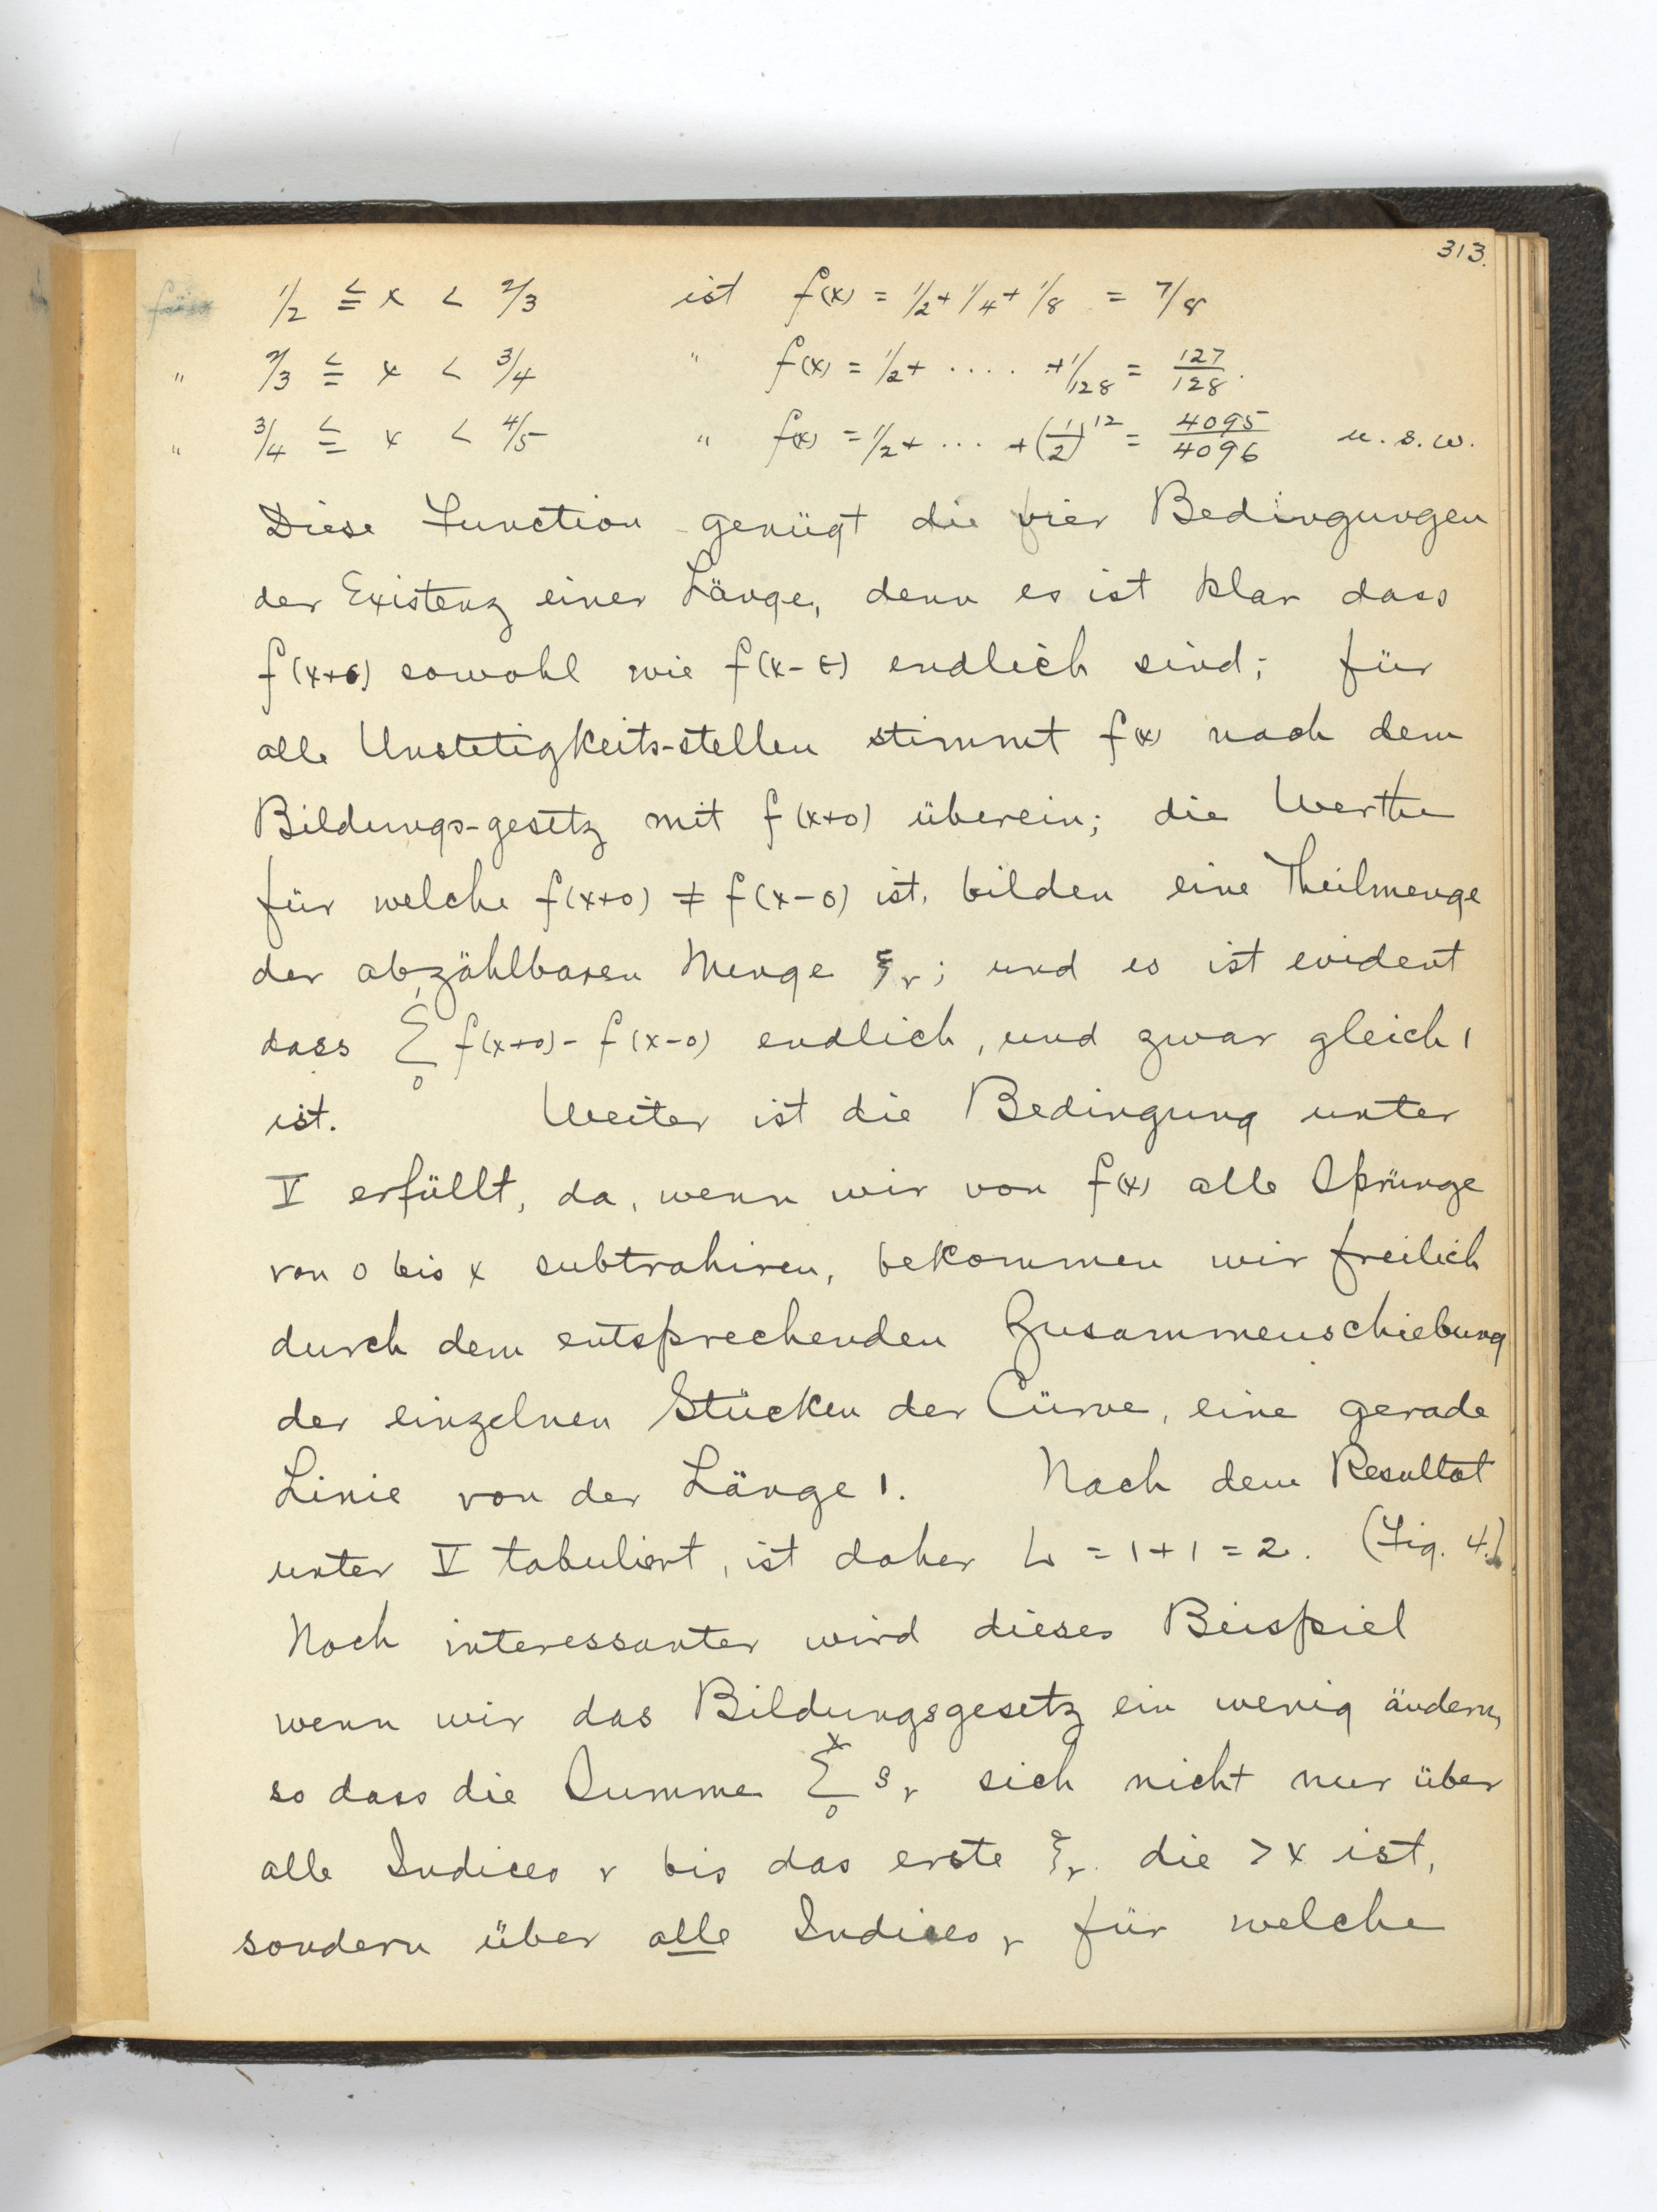 313.
für 1/2 ≦ x < 2/3 ist f(x) = 1/2 + 1/4 + 1/8 = 7/8
" 2/3 ≦ x < 3/4 " f(x) = 1/2 + .... + 1/128 = 127/128.
" 3/4 ≦ x < 4/5 " f(x) = 1/2 + ... + (1/2)^12 = 4095/4096 u.s.w.
Diese Function genügt die vier Bedingungen
der Existenz einer Länge, denn es ist klar dass
f(x+0) sowohl wie f(x-0) endlich sind; für
alle Unstetigkeits-stellen stimmt f(x) nach dem
Bildungs-gesetz mit f(x+0) überein; die Werthe
für welche f(x+0) ≠ f(x-0) ist, bilden eine Theilmenge
der abzählbaren Menge ξ_r; und es ist evident
dass Σ_0^1 f(x+0) - f(x-0) endlich, und zwar gleich 1
ist. Weiter ist die Bedingung unter
V erfüllt, da, wenn wir von f(x) alle Sprünge
von 0 bis x subtrahiren, bekommen wir freilich
durch dem entsprechenden Zusammenschiebung
der einzelnen Stücken der Cürve, eine gerade
Linie von der Länge 1. Nach dem Resultat
unter V tabuliert, ist daher L = 1 + 1 = 2. (Fig. 4.)
Noch interessanter wird dieses Beispiel
wenn wir das Bildungsgesetz ein wenig ändern,
so dass die Summe Σ_0^x s_r sich nicht nur über
alle Indices r bis das erste ξ_r die > x ist,
sondern über alle Indices r für welche